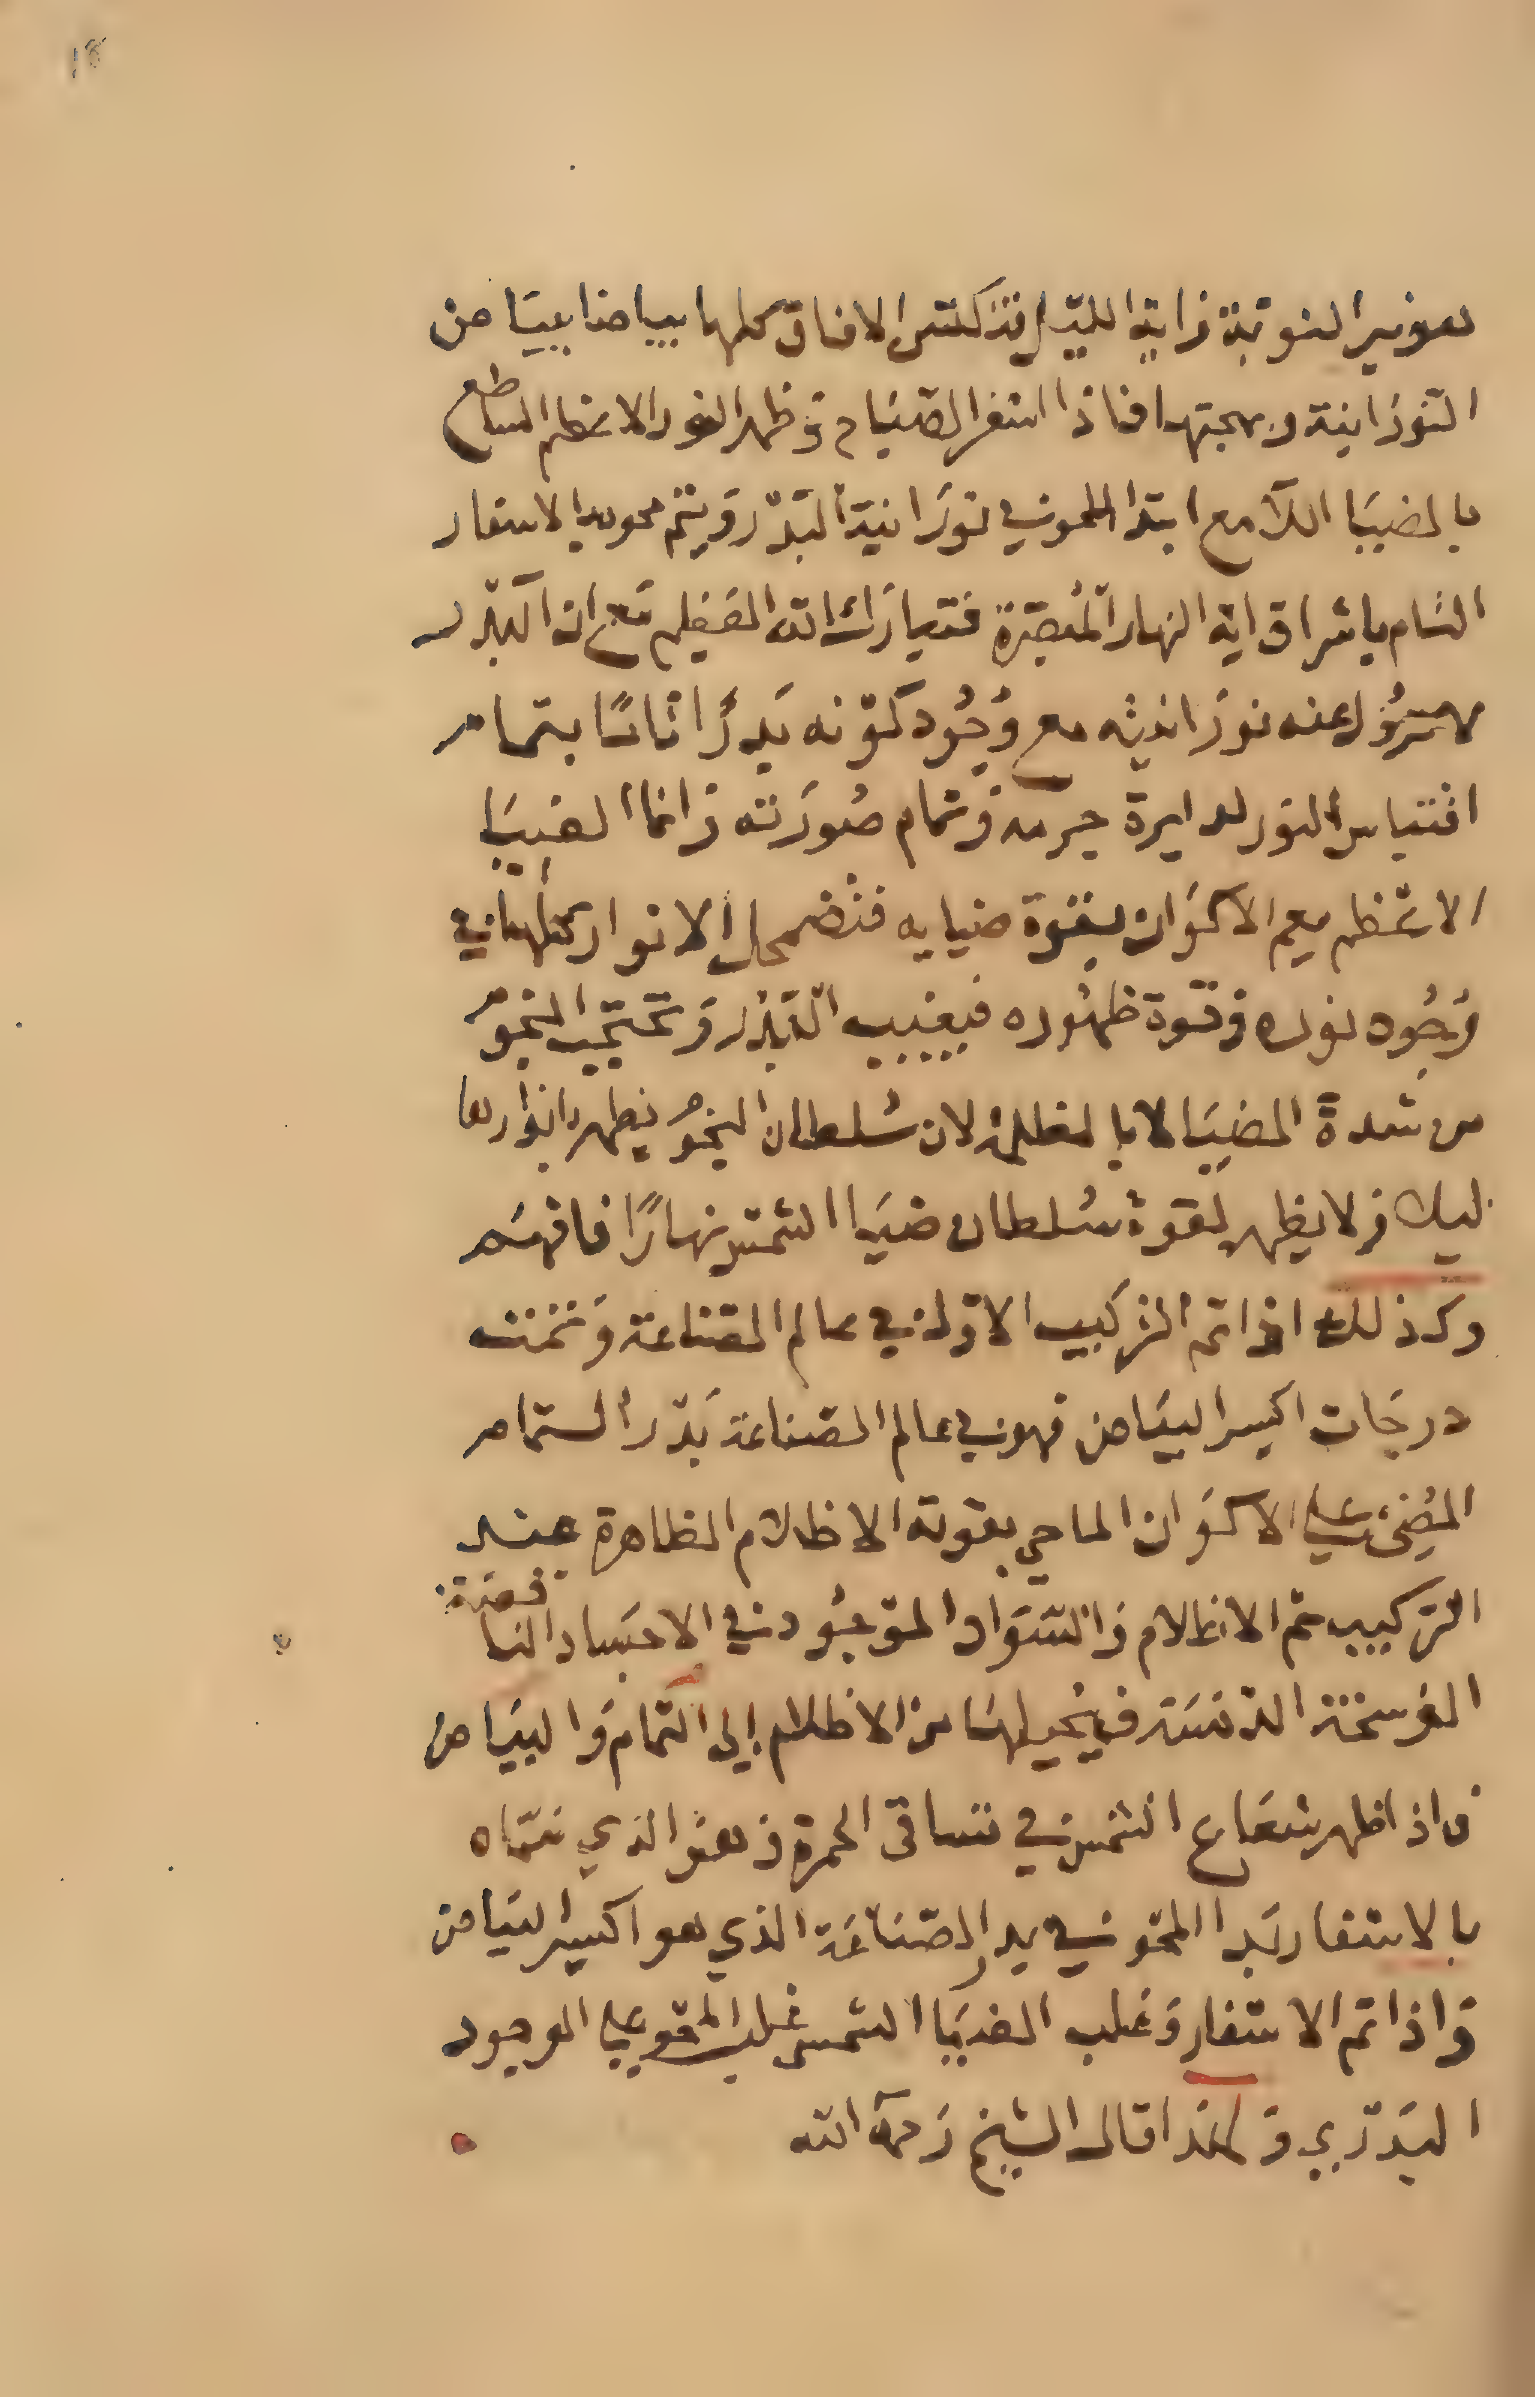 ١٨
هو نير النوبة واية الليل فتكتسي الافاق كلها بياضا بياض
النورانية وبهجتها فاذا اسفر الصباح وظهر النور الاعظم الساطع
بالضيا اللامع ابتدا المحو في نورانية البدر ويتم محوه بالاسفار
التام باشراق اية النهار المبصرة فتبارك الله العظيم مع ان البدر
لا تزول عنه نورانيته مع وجود كونه بدرا تاما بتمام
اقتباس النور لدايرة جرمه وتمام صورته وانما الضيا
الاعظم يعم الاكوان بقوة ضيايه فتضمحل الانوار كلها في
وجود نوره وقوة ظهوره فيغيب البدر وتحتجب النجوم
من شدة الضيا لا بالظلمة لان سلطان النجوم يظهر انوارها
ليلا ولا يظهر لقوة سلطان ضيا الشمس نهارا فافهم
وكذلك اذا تم التركيب الاول في عالم الصناعة وتمت
درجات اكسير البياض فهو في عالم الصناعة بدر التمام
المضئ على الاكوان الماحي بقوته الاظلام الظاهرة عند
التركيب ثم الاظلام والسواد الموجود في الاجساد الناقصة
الوسخة الدنسة فيحيلها من الاظلام الى التمام والبياض
فاذا ظهر شعاع الشمس في تساقى الحمرة وهو الذي سماه
بالاسفار بدا المحو في بدر الصناعة الذي هو اكسير البياض
واذا تم الاسفار وغلب الضيا الشمسي غلب المحو على الوجود
البدري ولهذا قال الشيخ رحمه الله